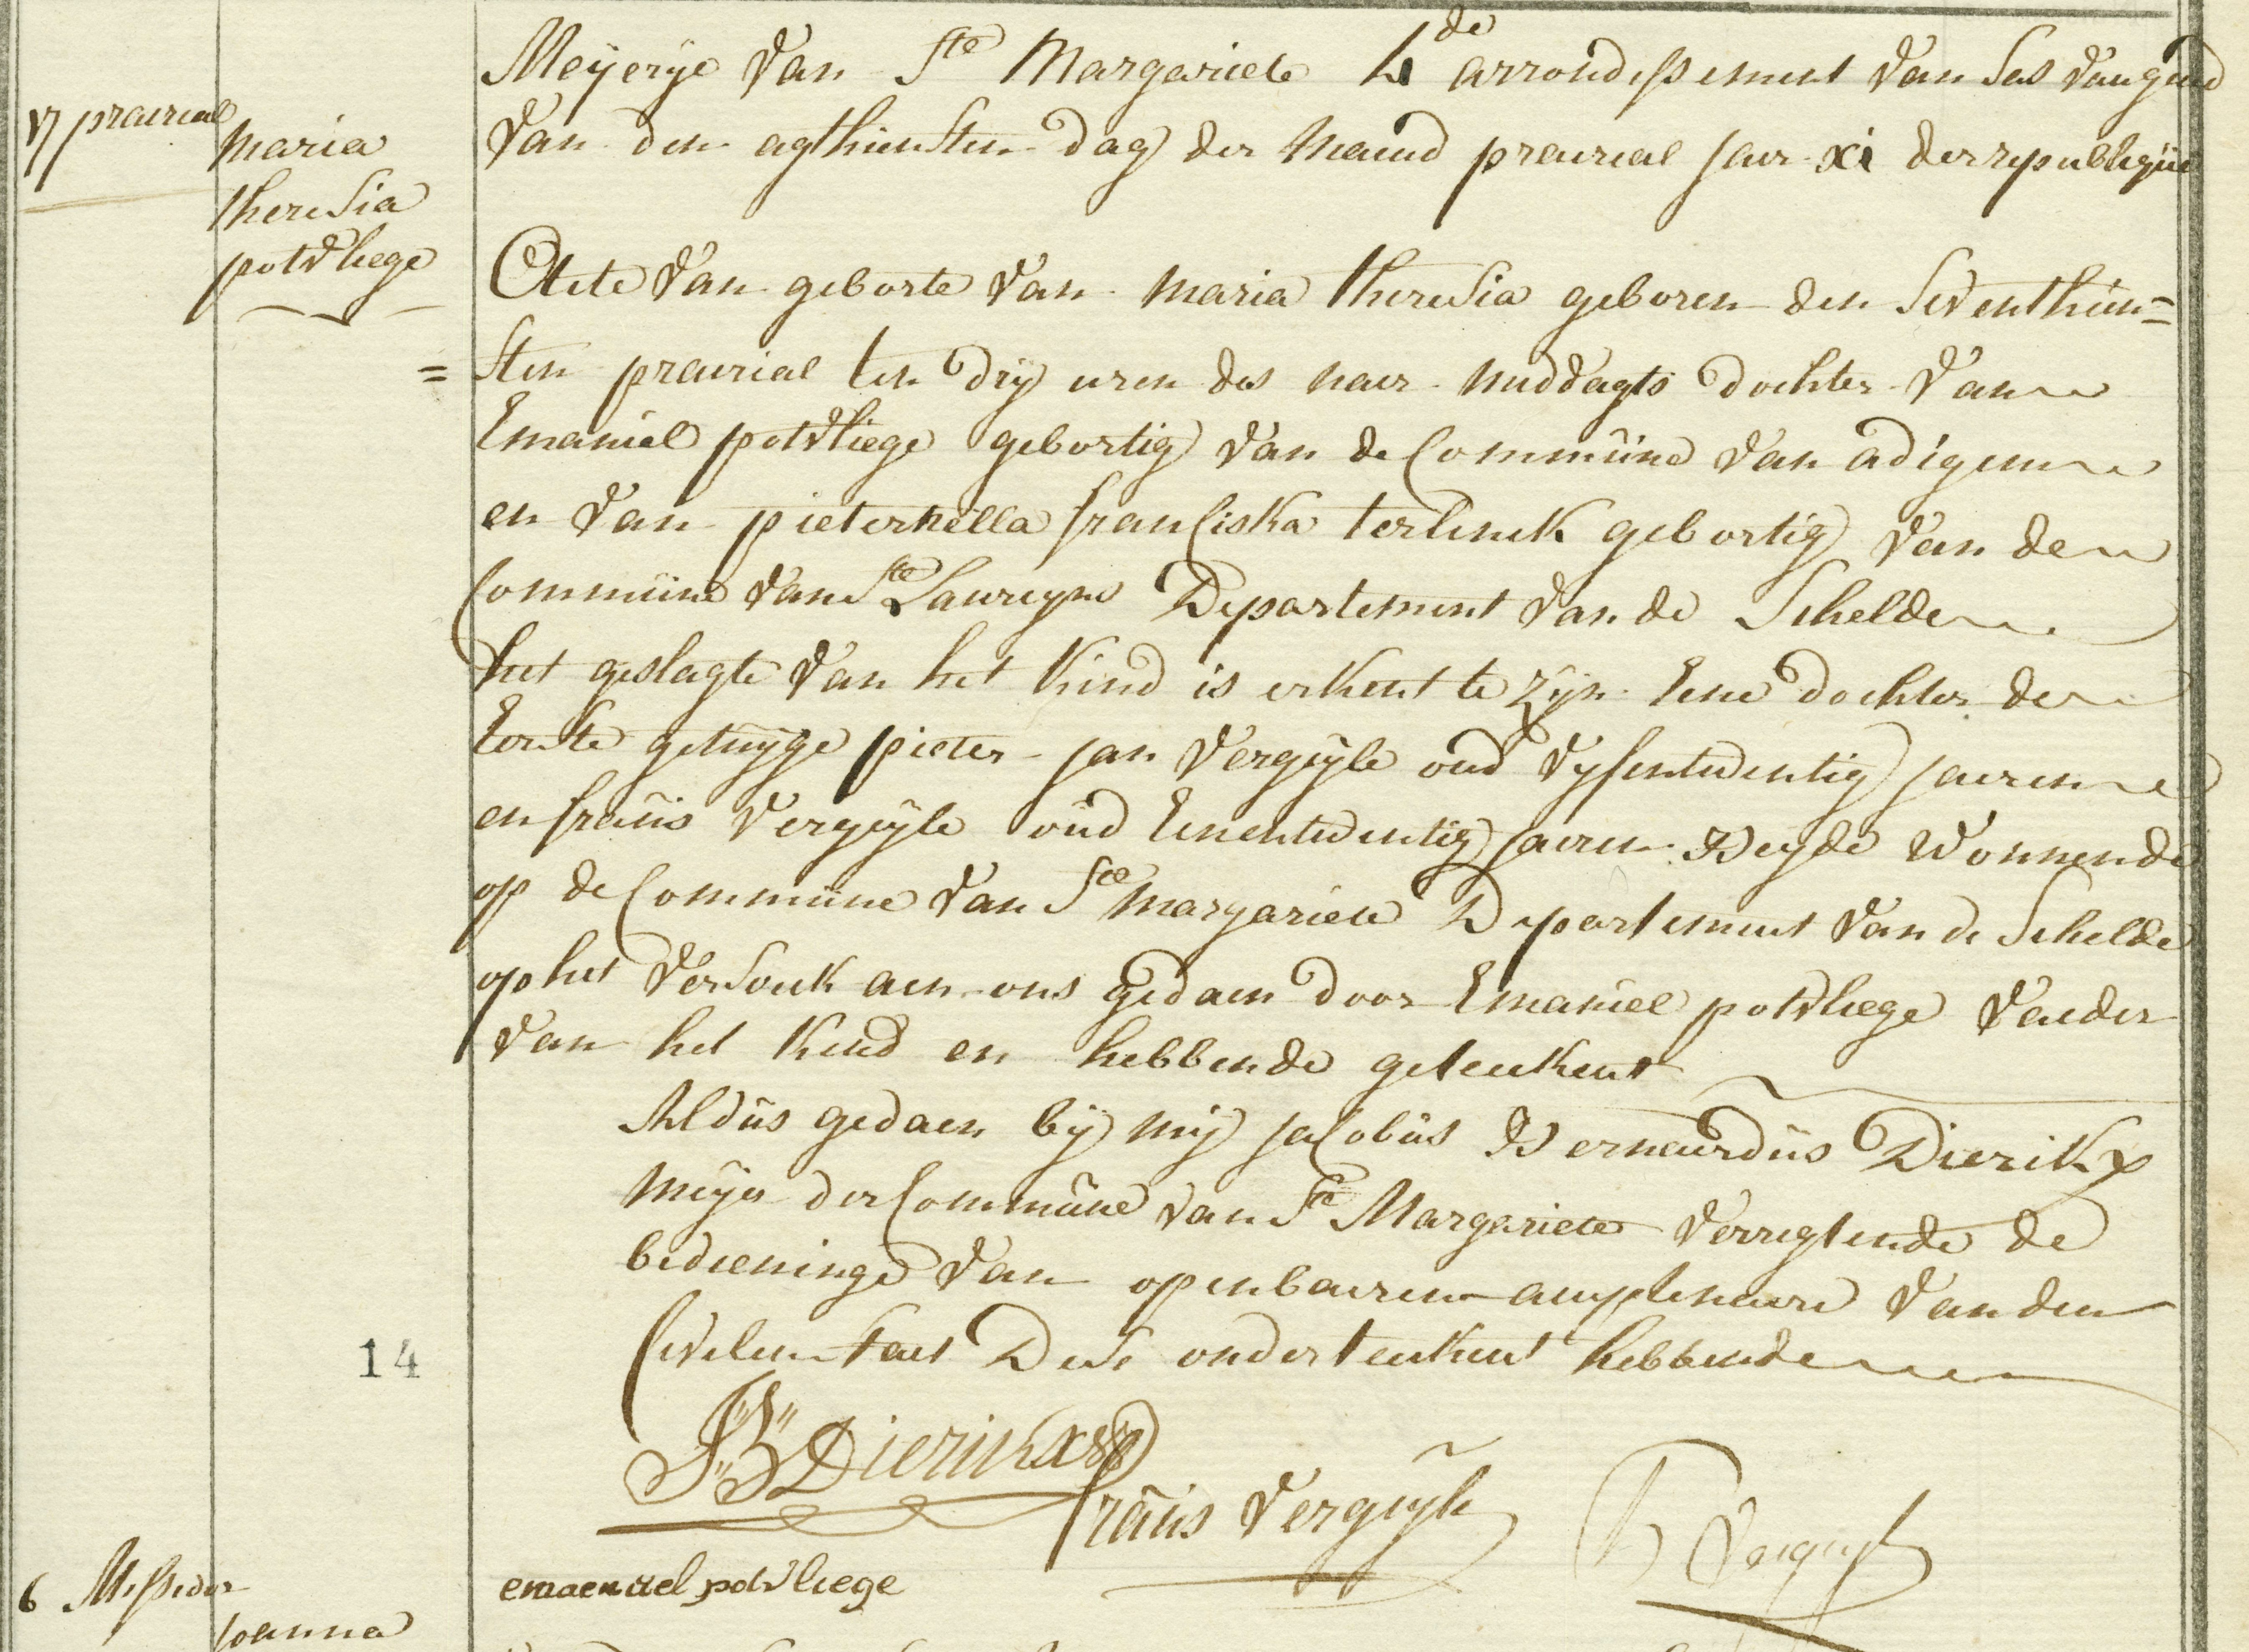 Meÿerÿe van Ste Margariete 4de arrondissement van Sas van gend
van den agthiensten dag der Maend prairial jaer xi der republiqüe
17 prairial
maria
theresia
potvliege
Acte van geborte van maria theresia geboren den seventhien=
=sten prairial ten drÿ uren des naer middagts dochter van
Emanuel potvliege gebortig van de Commüne van adigem
en van pieternella franciska terlinck gebortig van de
Commüne van Ste Laureyns Departement van de Schelde
het geslagte van het kind is erkent te zÿn eene dochter de
Eerste getuÿge pieter jan Vergÿyle oud vyfentwintig jaeren
en fraüs Vergÿyle oüd Eenentwintig jaeren Beyde wonnende
op de Commüne van Ste margariete Departement van de Schelde
op het versouk aen ons gedaen door Emanuel potvliege vaeder
van het kind en hebbende geteekent
Aldüs gedaen bÿ mÿ jacobüs Bernaerdüs Dierikx
meÿer der Commüne van Ste Margariete verregtende de
bedieninge van openbaeren amptenaere van den
Civelen staet Dese onderteekent hebbende
14
J B Dierikx
fraüs Vergüÿle
P J Verguyl
emaenuel potvliege
6 Messidor
joanna